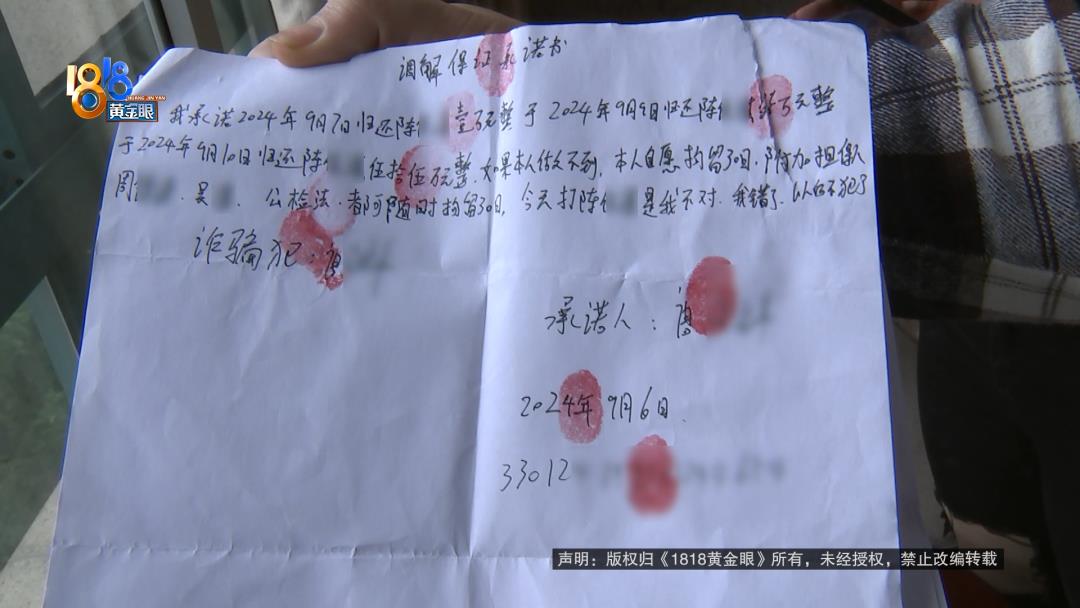 1818
HUANG JIN YAN
黄金眼
调解保证承诺书
我承诺2024年9月7日归还陈 壹万元整于2024年9月9日归还陈 万元整
于2024年9月10日归还陈 伍拾伍万元整.如果本人做不到,本人自愿拘留30日.附加担保人
周 、吴 、公检法.都可随时拘留30日,今天打陈 是我不对.我错了.以后不犯了
诈骗犯:廖
承诺人:廖
2024年9月6日
33012
声明:版权归《1818黄金眼》所有,未经授权,禁止改编转载